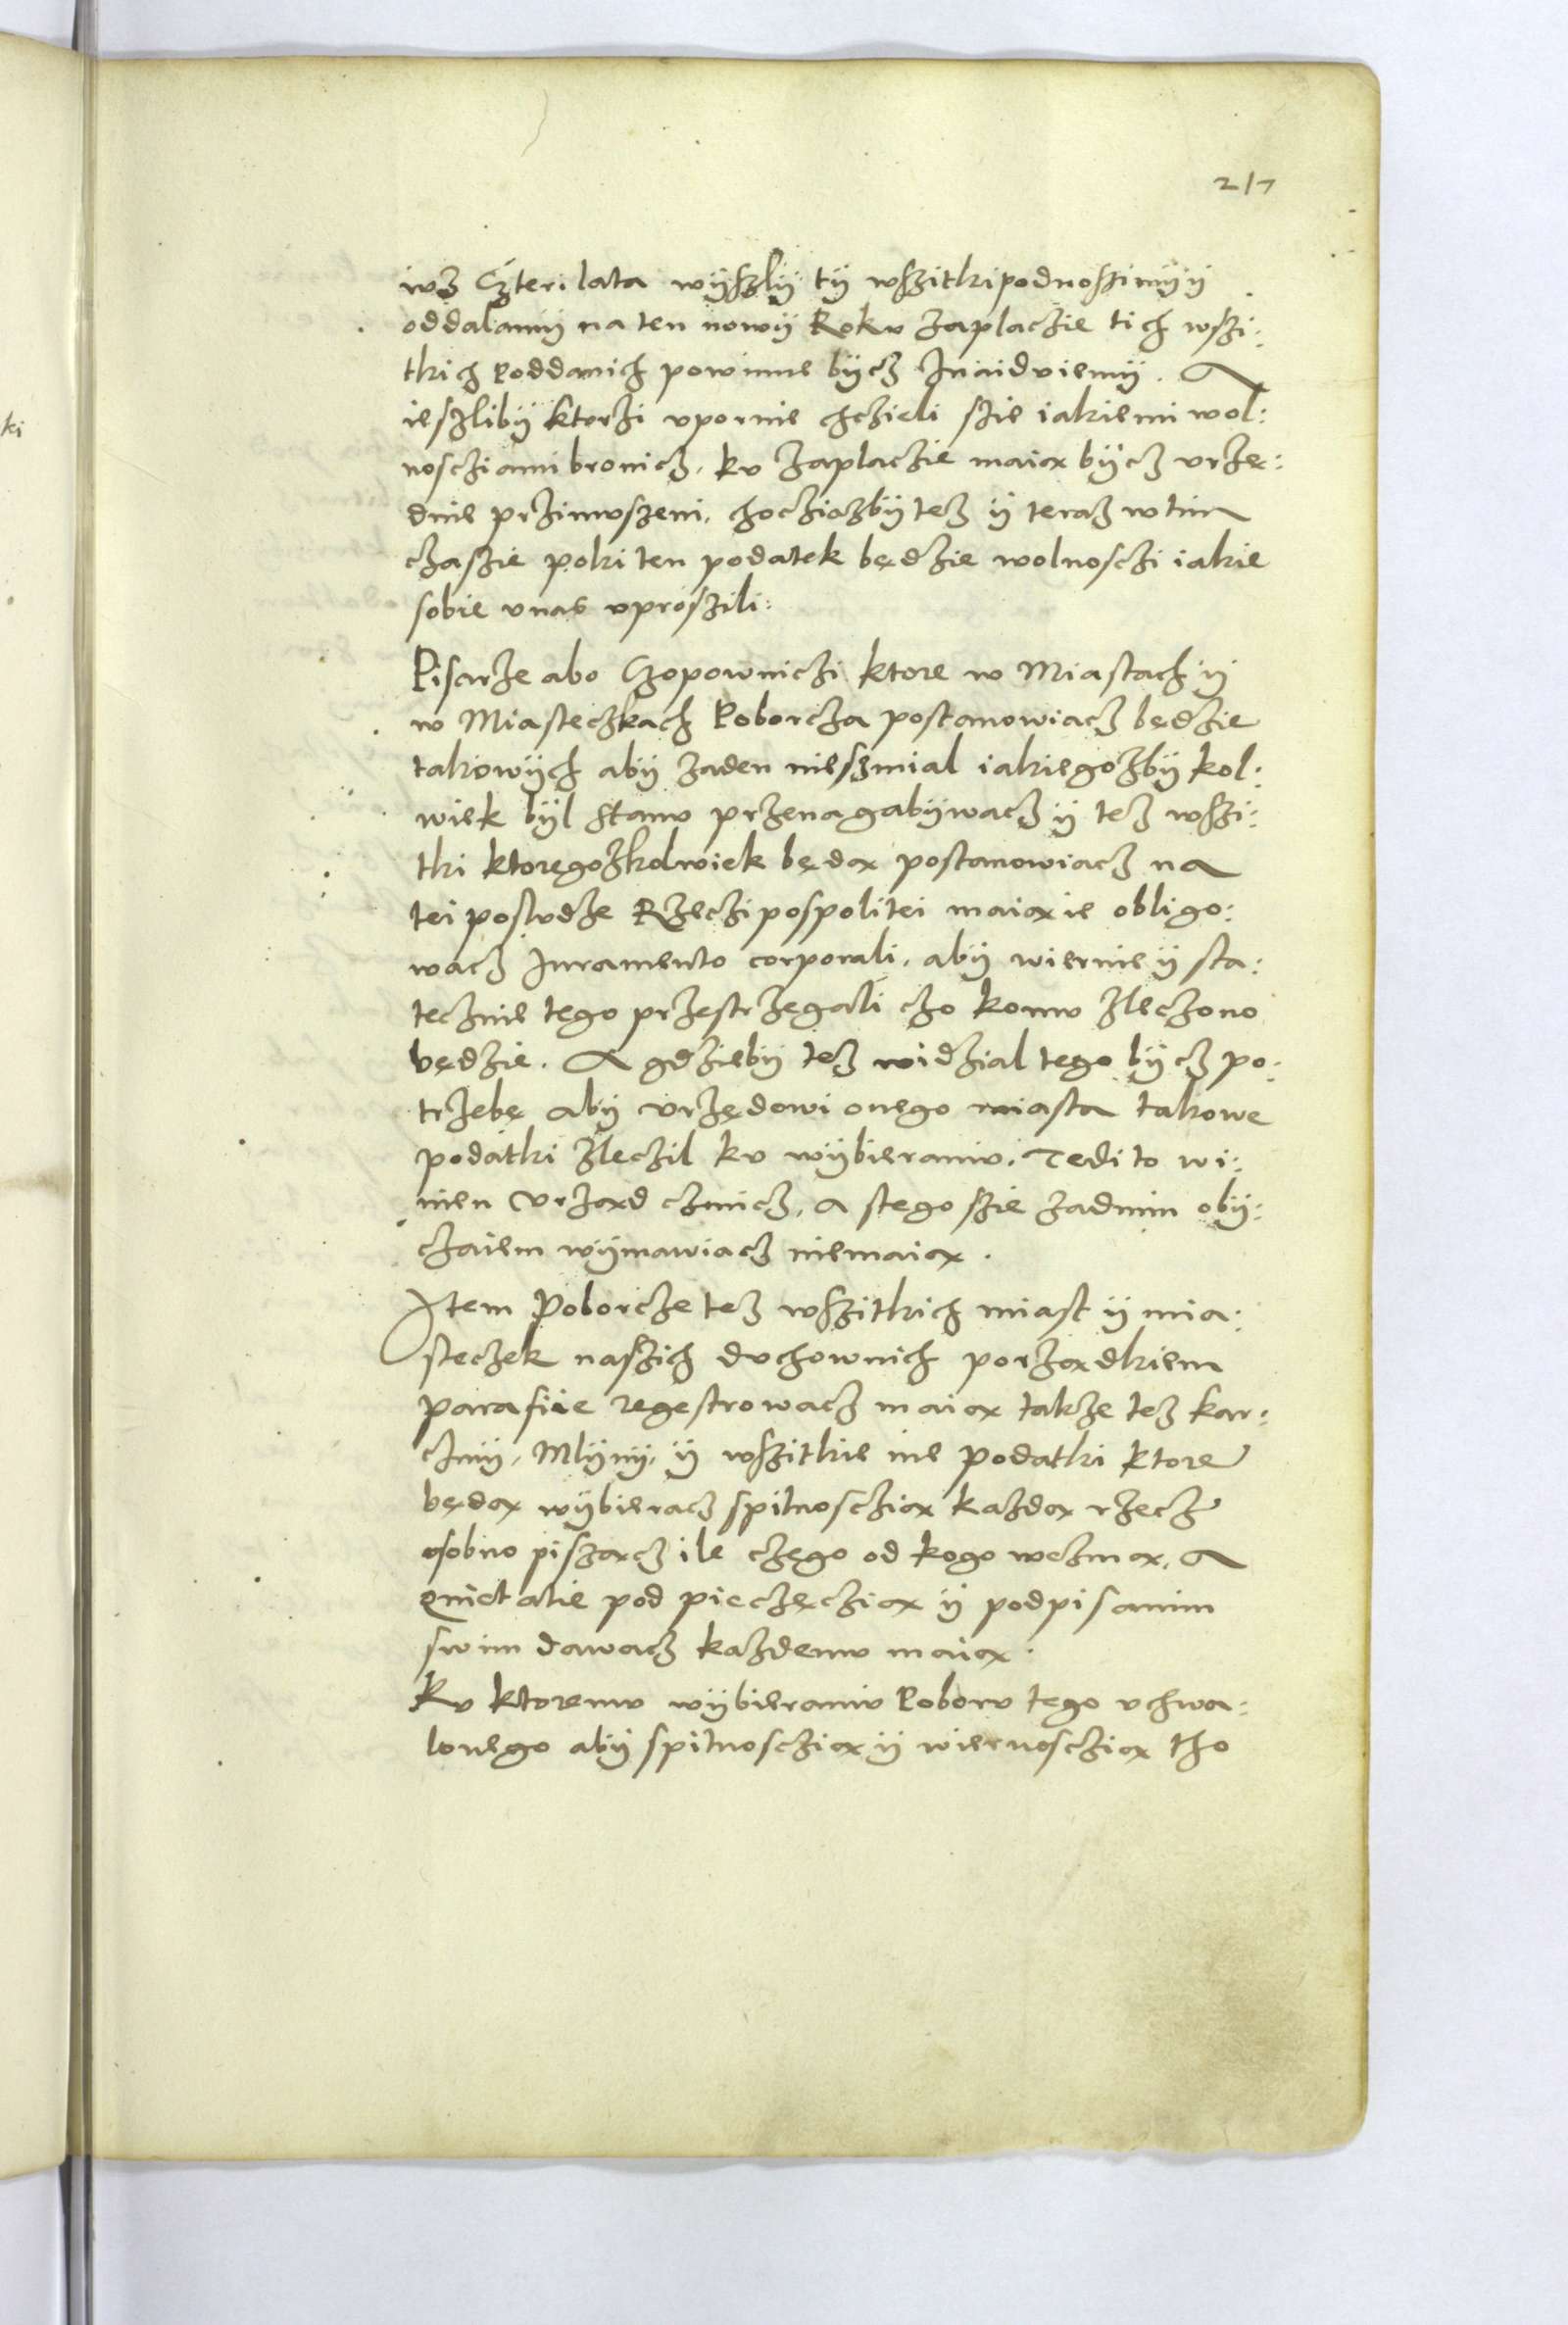 217
iwz Czteri lata wÿszlÿ tÿ wszitki podnoszimÿ ÿ
oddalamÿ na ten nowÿ Rok v zaplaczie tich wszi:
tkich Poddanich powinne bÿcz Inaiduiemÿ. A
ieszlibÿ ktorzi vpornie chczieli szie iakiemi wol:
noscziami bronicz, ku zaplaczie maiąx bÿcz vrzę:
dnie przimuszeni, chocziazbÿ tez ÿ teraz w tim
czaszie poki ten podatek będzie wolnosczi iakie
sobie v nas vproszili:
Pisarze abo Czopowniczi ktore w Miastach ÿ
w Miasteczkach Poborcza postanowiacz będzie
takowÿch abÿ zaden nieszmial iakiegozbÿ kol:
wiek bÿl stanu przenagabÿwacz ÿ tez wszi:
tki ktoregozkolwiek będą postanowiacz na
tei posludze Rzeczipospolitei maią ie obligo:
wacz Juramento corporali, abÿ wiernie ÿ sta:
tecznie tego przestrzegali czo komu zleczono
będzie. A gdziebÿ tez widzial tego bÿcz po:
trzebę abÿ vrzędowi onego miasta takowe
podatki zleczil ku wÿbieraniu. Tedi to wi:
nien Vrząd czinicz, a stego szie zadnim obÿ:
czaiem wÿmawiacz niemaią.
Item Poborcze tez wszitkich miast ÿ mia:
steczek naszich duchownich porządkiem
parafiie regestrowacz maią takze tez kar:
czmÿ, Mlÿnÿ, ÿ wszitkie ine podatki ktore
będą wÿbieracz spilnoscżią kazdą rzecz
osobno pisząacz ile czego od kogo wezmą, a
quictatie pod pieczęcżią ÿ podpisanim
swim dawacz kazdemu maią.
Ku ktoremu wÿbieraniu Poboru tego vchwa:
lonego abÿ spilnoscżią ÿ wiernoscżią tho